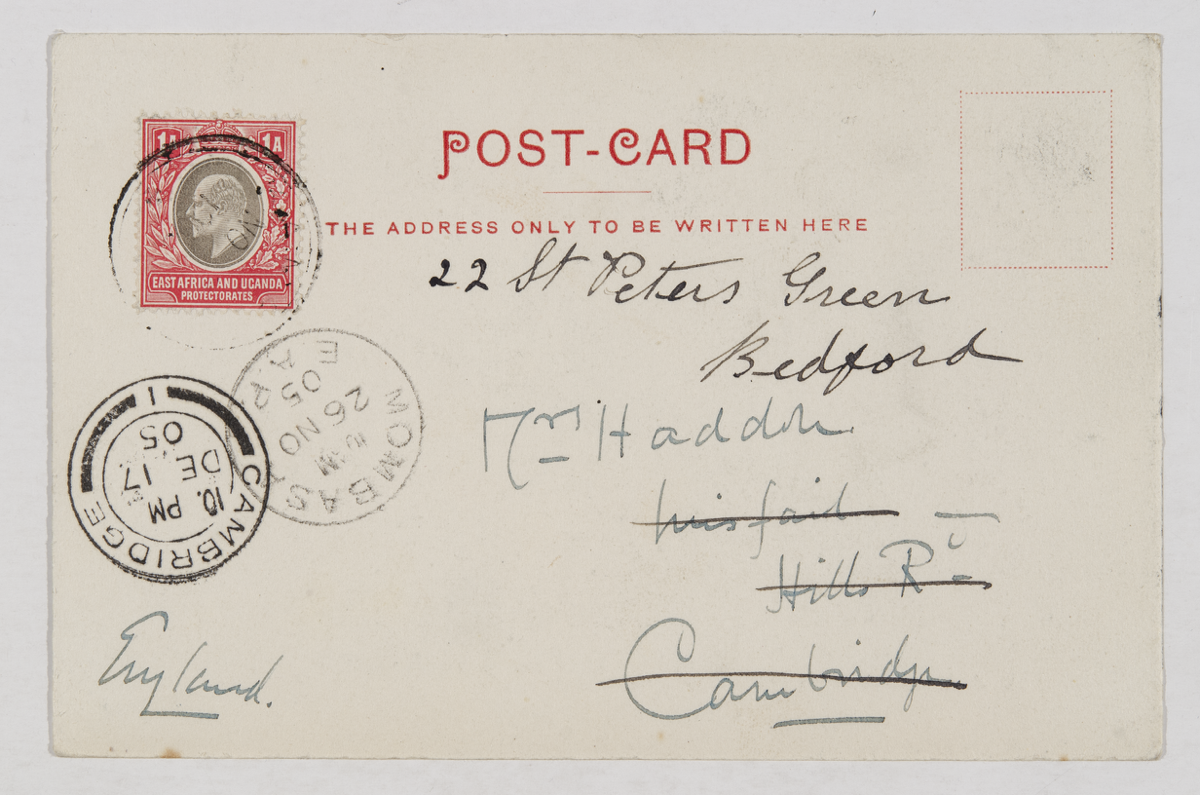 POST-CARD
THE ADDRESS ONLY TO BE WRITTEN HERE
1A 1A
EAST AFRICA AND UGANDA
PROTECTORATES
22 St Peters Green
Bedford
Mrs Haddon
Innisfail
Hills Rd
Cambridge
England.
MOMBASA
26 NO
05
E.A.P.
CAMBRIDGE
10. PM
DE 17
05
1